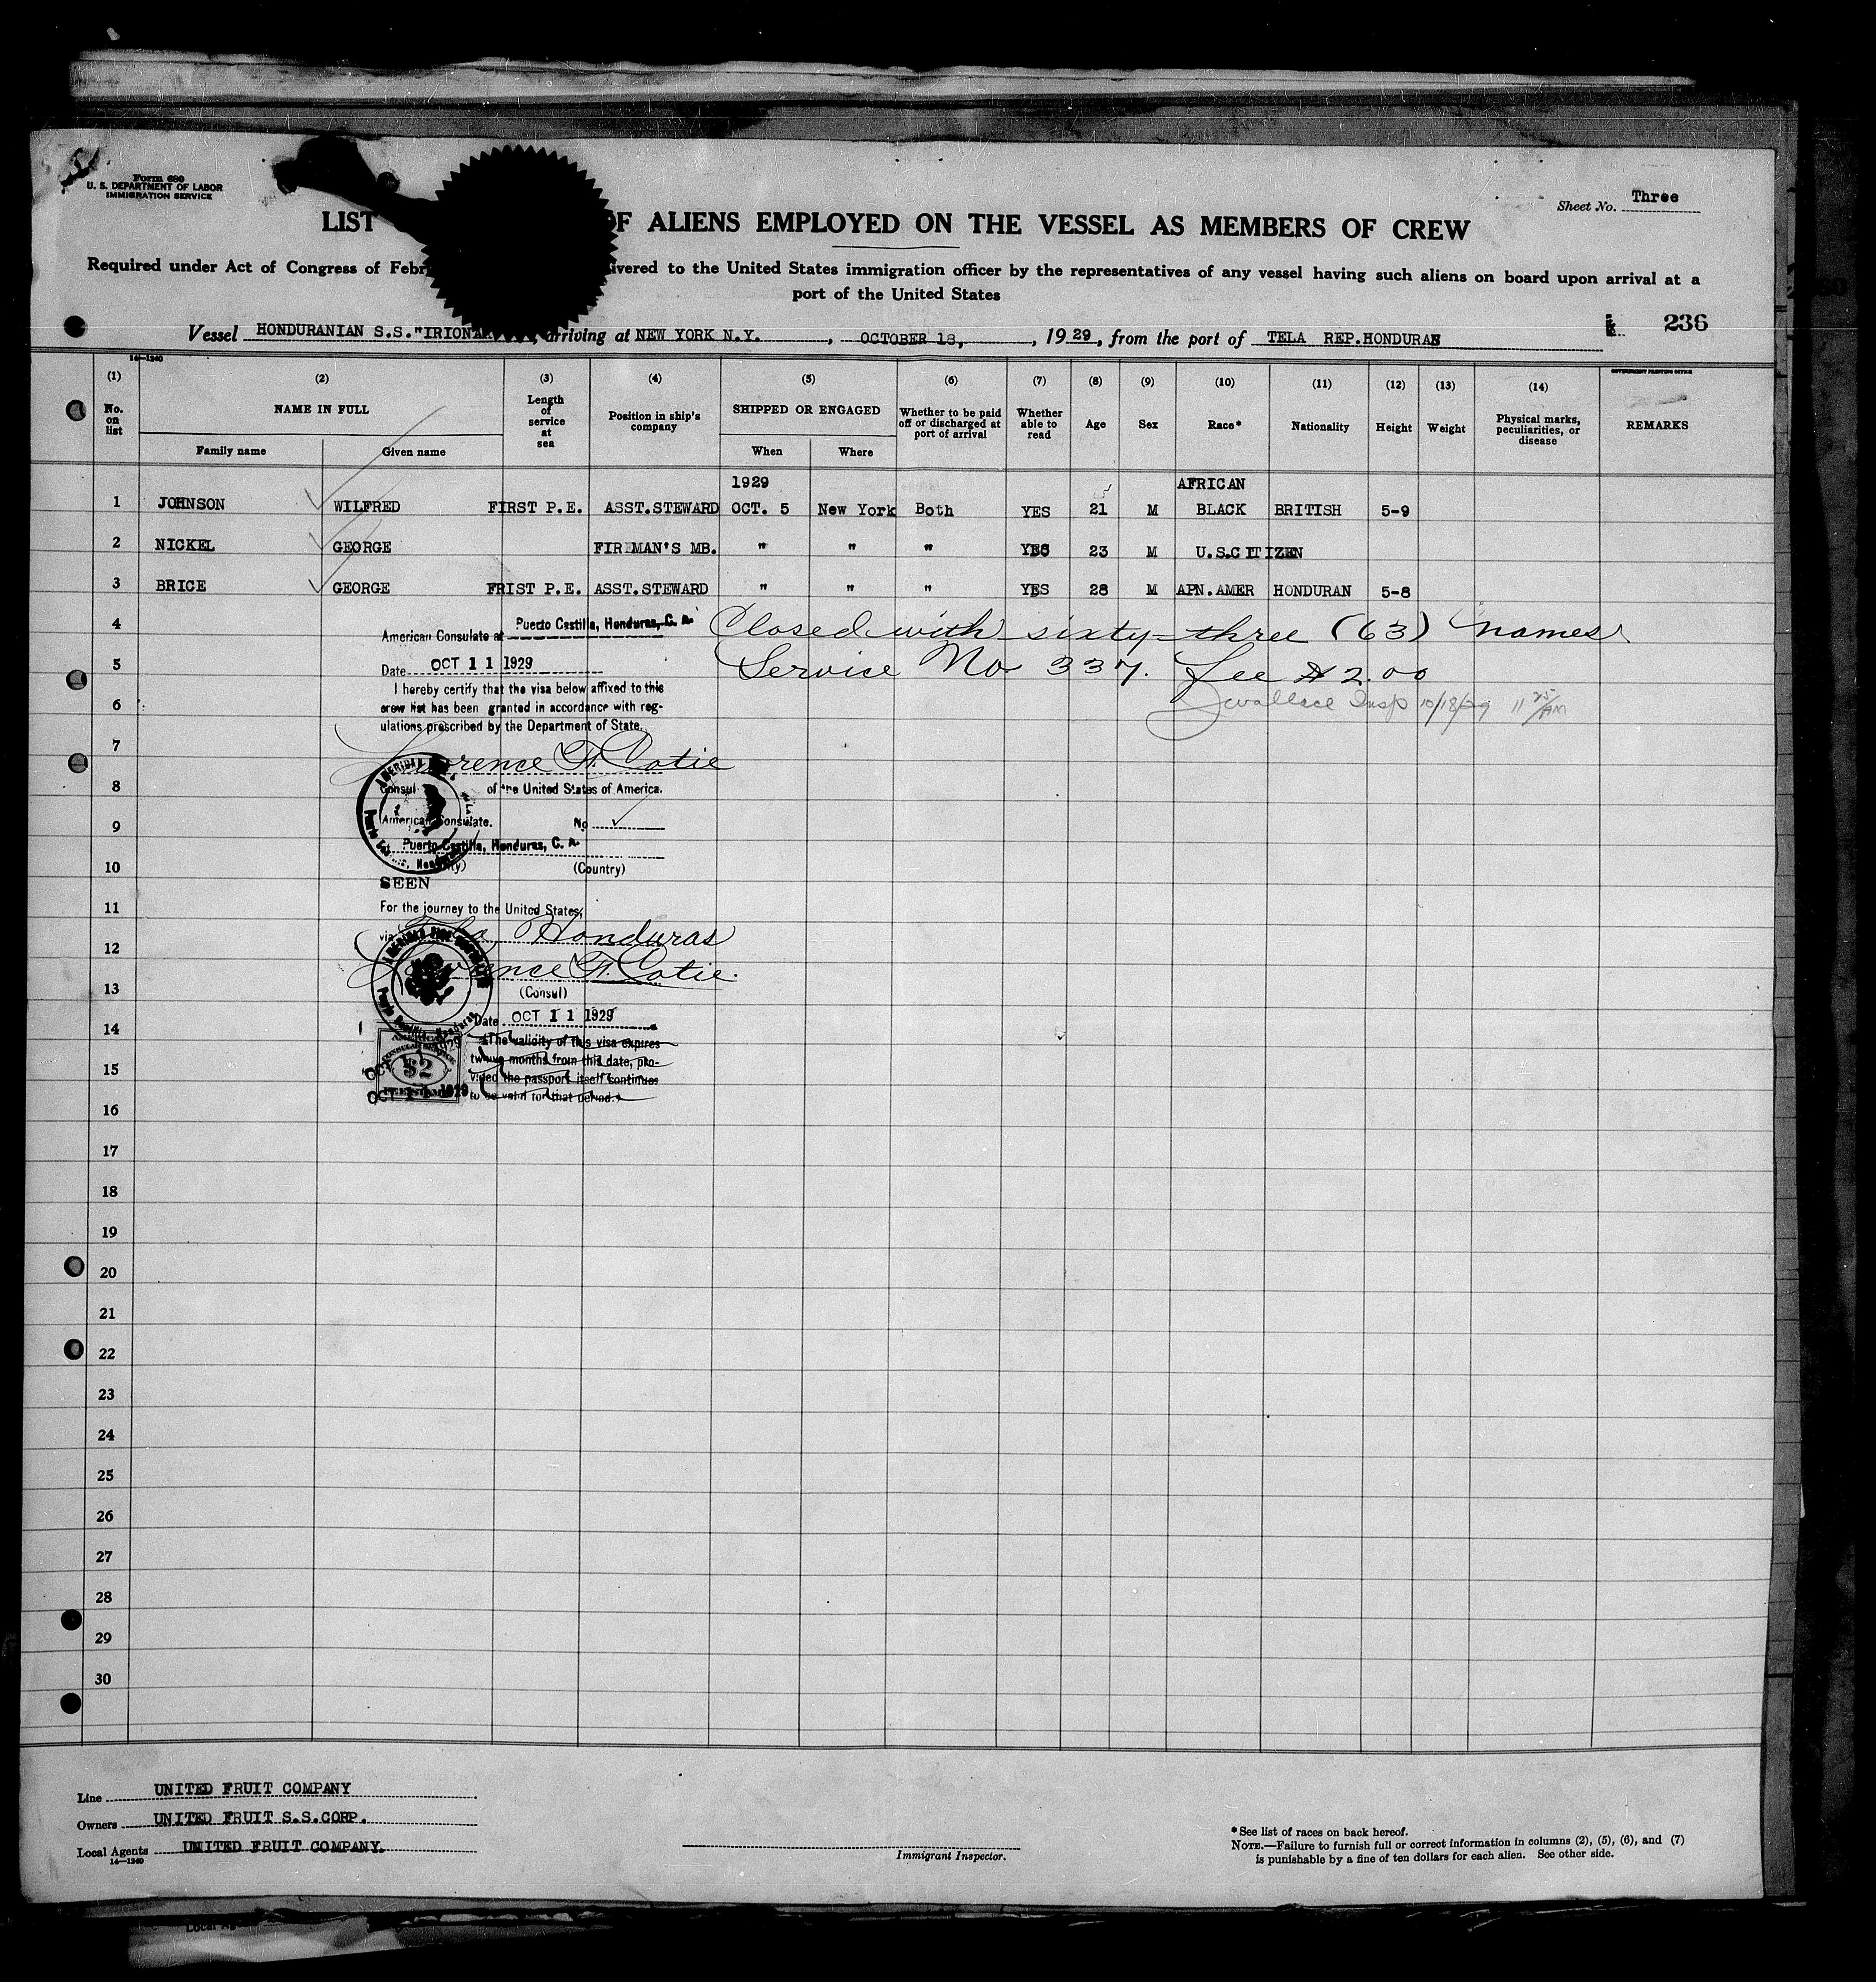 Form 680
U. S. DEPARTMENT OF LABOR
IMMIGRATION SERVICE
Sheet No. Three
LIST OF ALIENS EMPLOYED ON THE VESSEL AS MEMBERS OF CREW
Required under Act of Congress of Febr ivered to the United States immigration officer by the representatives of any vessel having such aliens on board upon arrival at a
port of the United States
236
Vessel HONDURANIAN S.S. "IRIONA arriving at NEW YORK N.Y. , OCTOBER 18, , 1929, from the port of TELA REP.HONDURAS
14—1240
GOVERNMENT PRINTING OFFICE
(1) (2) (3) (4) (5) (6) (7) (8) (9) (10) (11) (12) (13) (14)
No. on list NAME IN FULL Length of service at sea Position in ship's company SHIPPED OR ENGAGED Whether to be paid off or discharged at port of arrival Whether able to read Age Sex Race* Nationality Height Weight Physical marks, peculiarities, or disease REMARKS
Family name Given name When Where
1929 AFRICAN
1 JOHNSON WILFRED FIRST P.E. ASST.STEWARD OCT. 5 New York Both YES 21 M BLACK BRITISH 5-9
2 NICKEL GEORGE FIREMAN'S MB. " " " YES 23 M U.S.CITIZEN
3 BRICE GEORGE FRIST P.E. ASST.STEWARD " " " YES 28 M AFN.AMER HONDURAN 5-8
4 American Consulate at Puerto Castilla, Honduras, C. A. Closed with sixty-three (63) names
5 Date OCT 11 1929 Service No 337. Fee $2.00
I hereby certify that the visa below affixed to this
6 crew list has been granted in accordance with reg- Jwallace Insp 10/18/29 11 25/AM
ulations prescribed by the Department of State.
7 Lawrence F. Cotie
8 Consul of the United States of America.
9 American Consulate. No
Puerto Castilla, Honduras, C. A.
10 (Country)
SEEN
11 For the journey to the United States,
12 via Tela, Honduras
Lawrence F. Cotie.
13 (Consul)
Date OCT 11 1929
14 (The validity of this visa expires
twelve months from this date, pro-
15 vided the passport itself continues
to be valid for that period.)
$2
OCT 11 1929
16
17
18
19
20
21
22
23
24
25
26
27
28
29
30
Line UNITED FRUIT COMPANY
Owners UNITED FRUIT S.S.CORP.
Local Agents UNITED FRUIT COMPANY.
14—1240
Immigrant Inspector.
*See list of races on back hereof.
NOTE.—Failure to furnish full or correct information in columns (2), (5), (6), and (7)
is punishable by a fine of ten dollars for each alien. See other side.